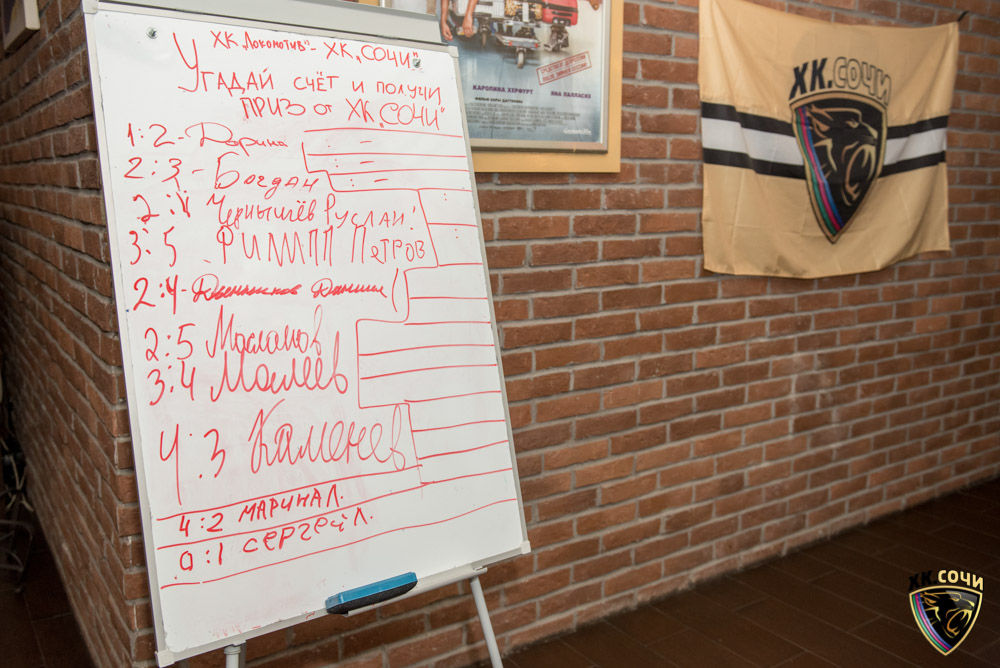 ХК „Локомотив" - ХК „СОЧИ"
Угадай счёт и получи
ПРИЗ от ХК „СОЧИ"
1:2 - Дарина
2:3 - Богдан
2:4 Чернышёв Руслан!
3:5 Филипп Петров
2:4 - Даниил
2:5 Масланов
3:4 Моисеев
4:3 Каменев
4:2 МАРИНА Л.
0:1 СЕРГЕЙ Л.
КАРОЛИНА ХЕРФУРТ ЯНА ПАЛЛАСКЕ
ХК.СОЧИ
ХК.СОЧИ